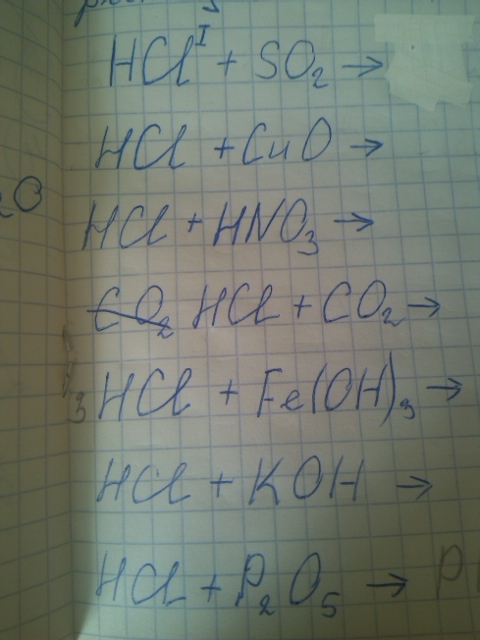 HCl^I + SO₂ →
HCl + CuO →
HCl + HNO₃ →
HCl + CO₂ →
3HCl + Fe(OH)₃ →
HCl + KOH →
HCl + P₂O₅ → P